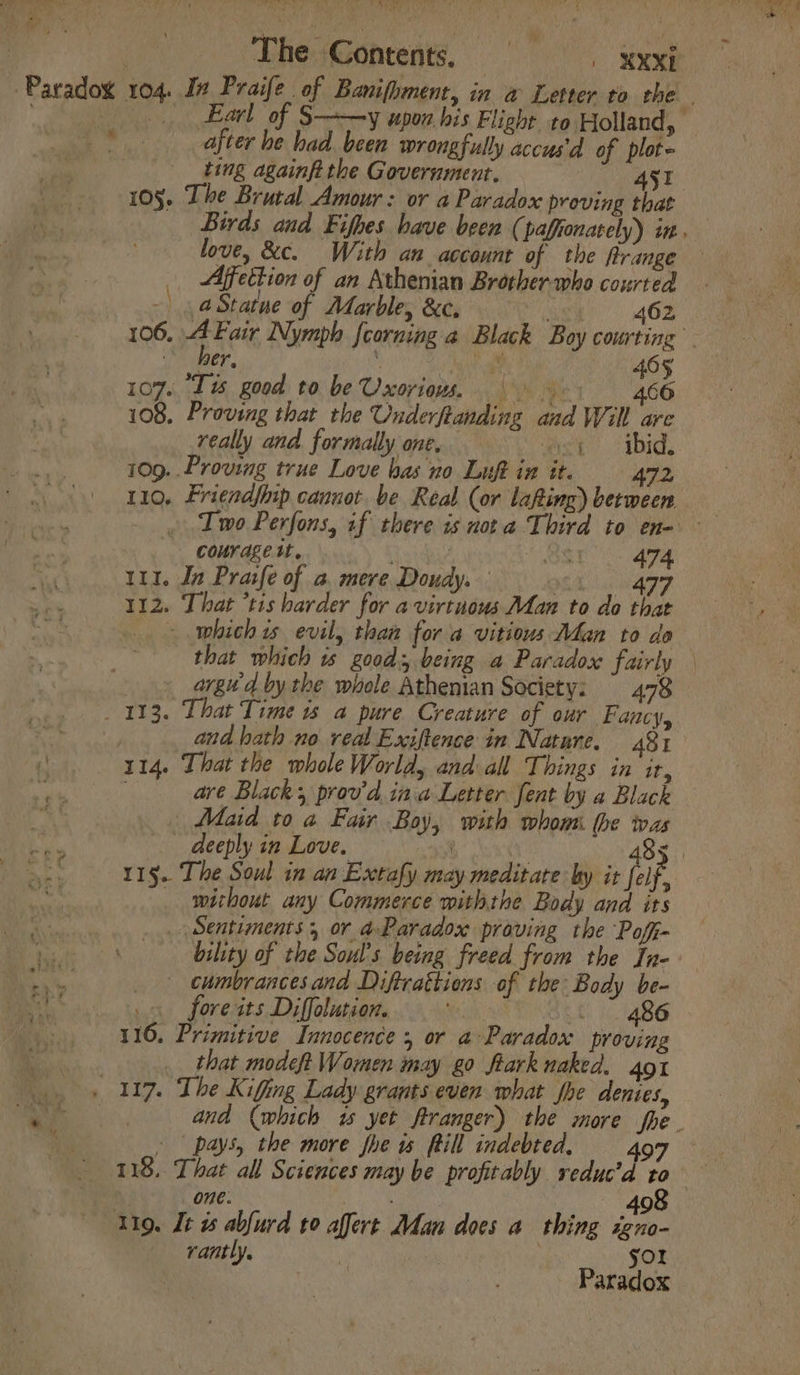 The Contents. xxxi
Paradox 104. In Praiſe of Baniſhment, in a Letter to the
Earl of S——y upon his Flight to Holland,
after he had been wrongfully accus'd of plot-
ting againſt the Government. 451
105. The Brutal Amour: or a Paradox proving that
Birds and Fiſhes have been (paſſionately) in
love, &c. With an account of the ſtrange
Affection of an Athenian Brother who courted
a Statue of Marble, &c. 462
106. A Fair Nymph ſcorning a Black Boy courting
her. 465
107. 'Tis good to be Uxorious. 466
108. Proving that the Underſtanding and Will are
really and formally one. ibid.
109. Proving true Love has no Luſt in it. 472
110. Friendſhip cannot be Real (or laſting) between
Two Perſons, if there is not a Third to en-
courage it. 474
111. In Praiſe of a mere Doudy. 477
112. That 'tis harder for a virtuous Man to do that
which is evil, than for a vitious Man to do
that which is good; being a Paradox fairly
argu'd by the whole Athenian Society: 478
113. That Time is a pure Creature of our Fancy,
and hath no real Exiſtence in Nature. 481
114. That the whole World, and all Things in it,
are Black; prov'd in a Letter ſent by a Black
Maid to a Fair Boy, with whom ſhe was
deeply in Love. 485
115. The Soul in an Extaſy may meditate by it ſelf,
without any Commerce with the Body and its
Sentiments; or a Paradox proving the Poſſi-
bility of the Soul's being freed from the In-
cumbrances and Diſtractions of the Body be-
fore its Diſſolution. 486
116. Primitive Innocence; or a Paradox proving
that modeſt Women may go ſtark naked. 491
117. The Kiſſing Lady grants even what ſhe denies,
and (which is yet ſtranger) the more ſhe
pays, the more ſhe is ſtill indebted. 497
118. That all Sciences may be profitably reduc'd to
one. 498
119. It is abſurd to aſſert Man does a thing igno-
rantly. 501
Paradox